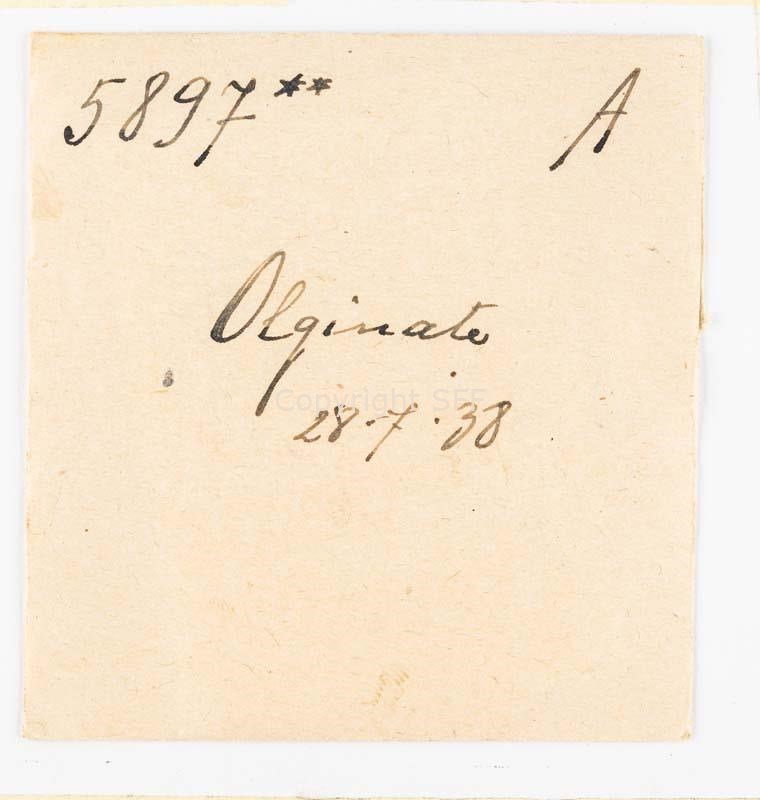 5897** A
Olginate
Copyright SFF
28-7-38